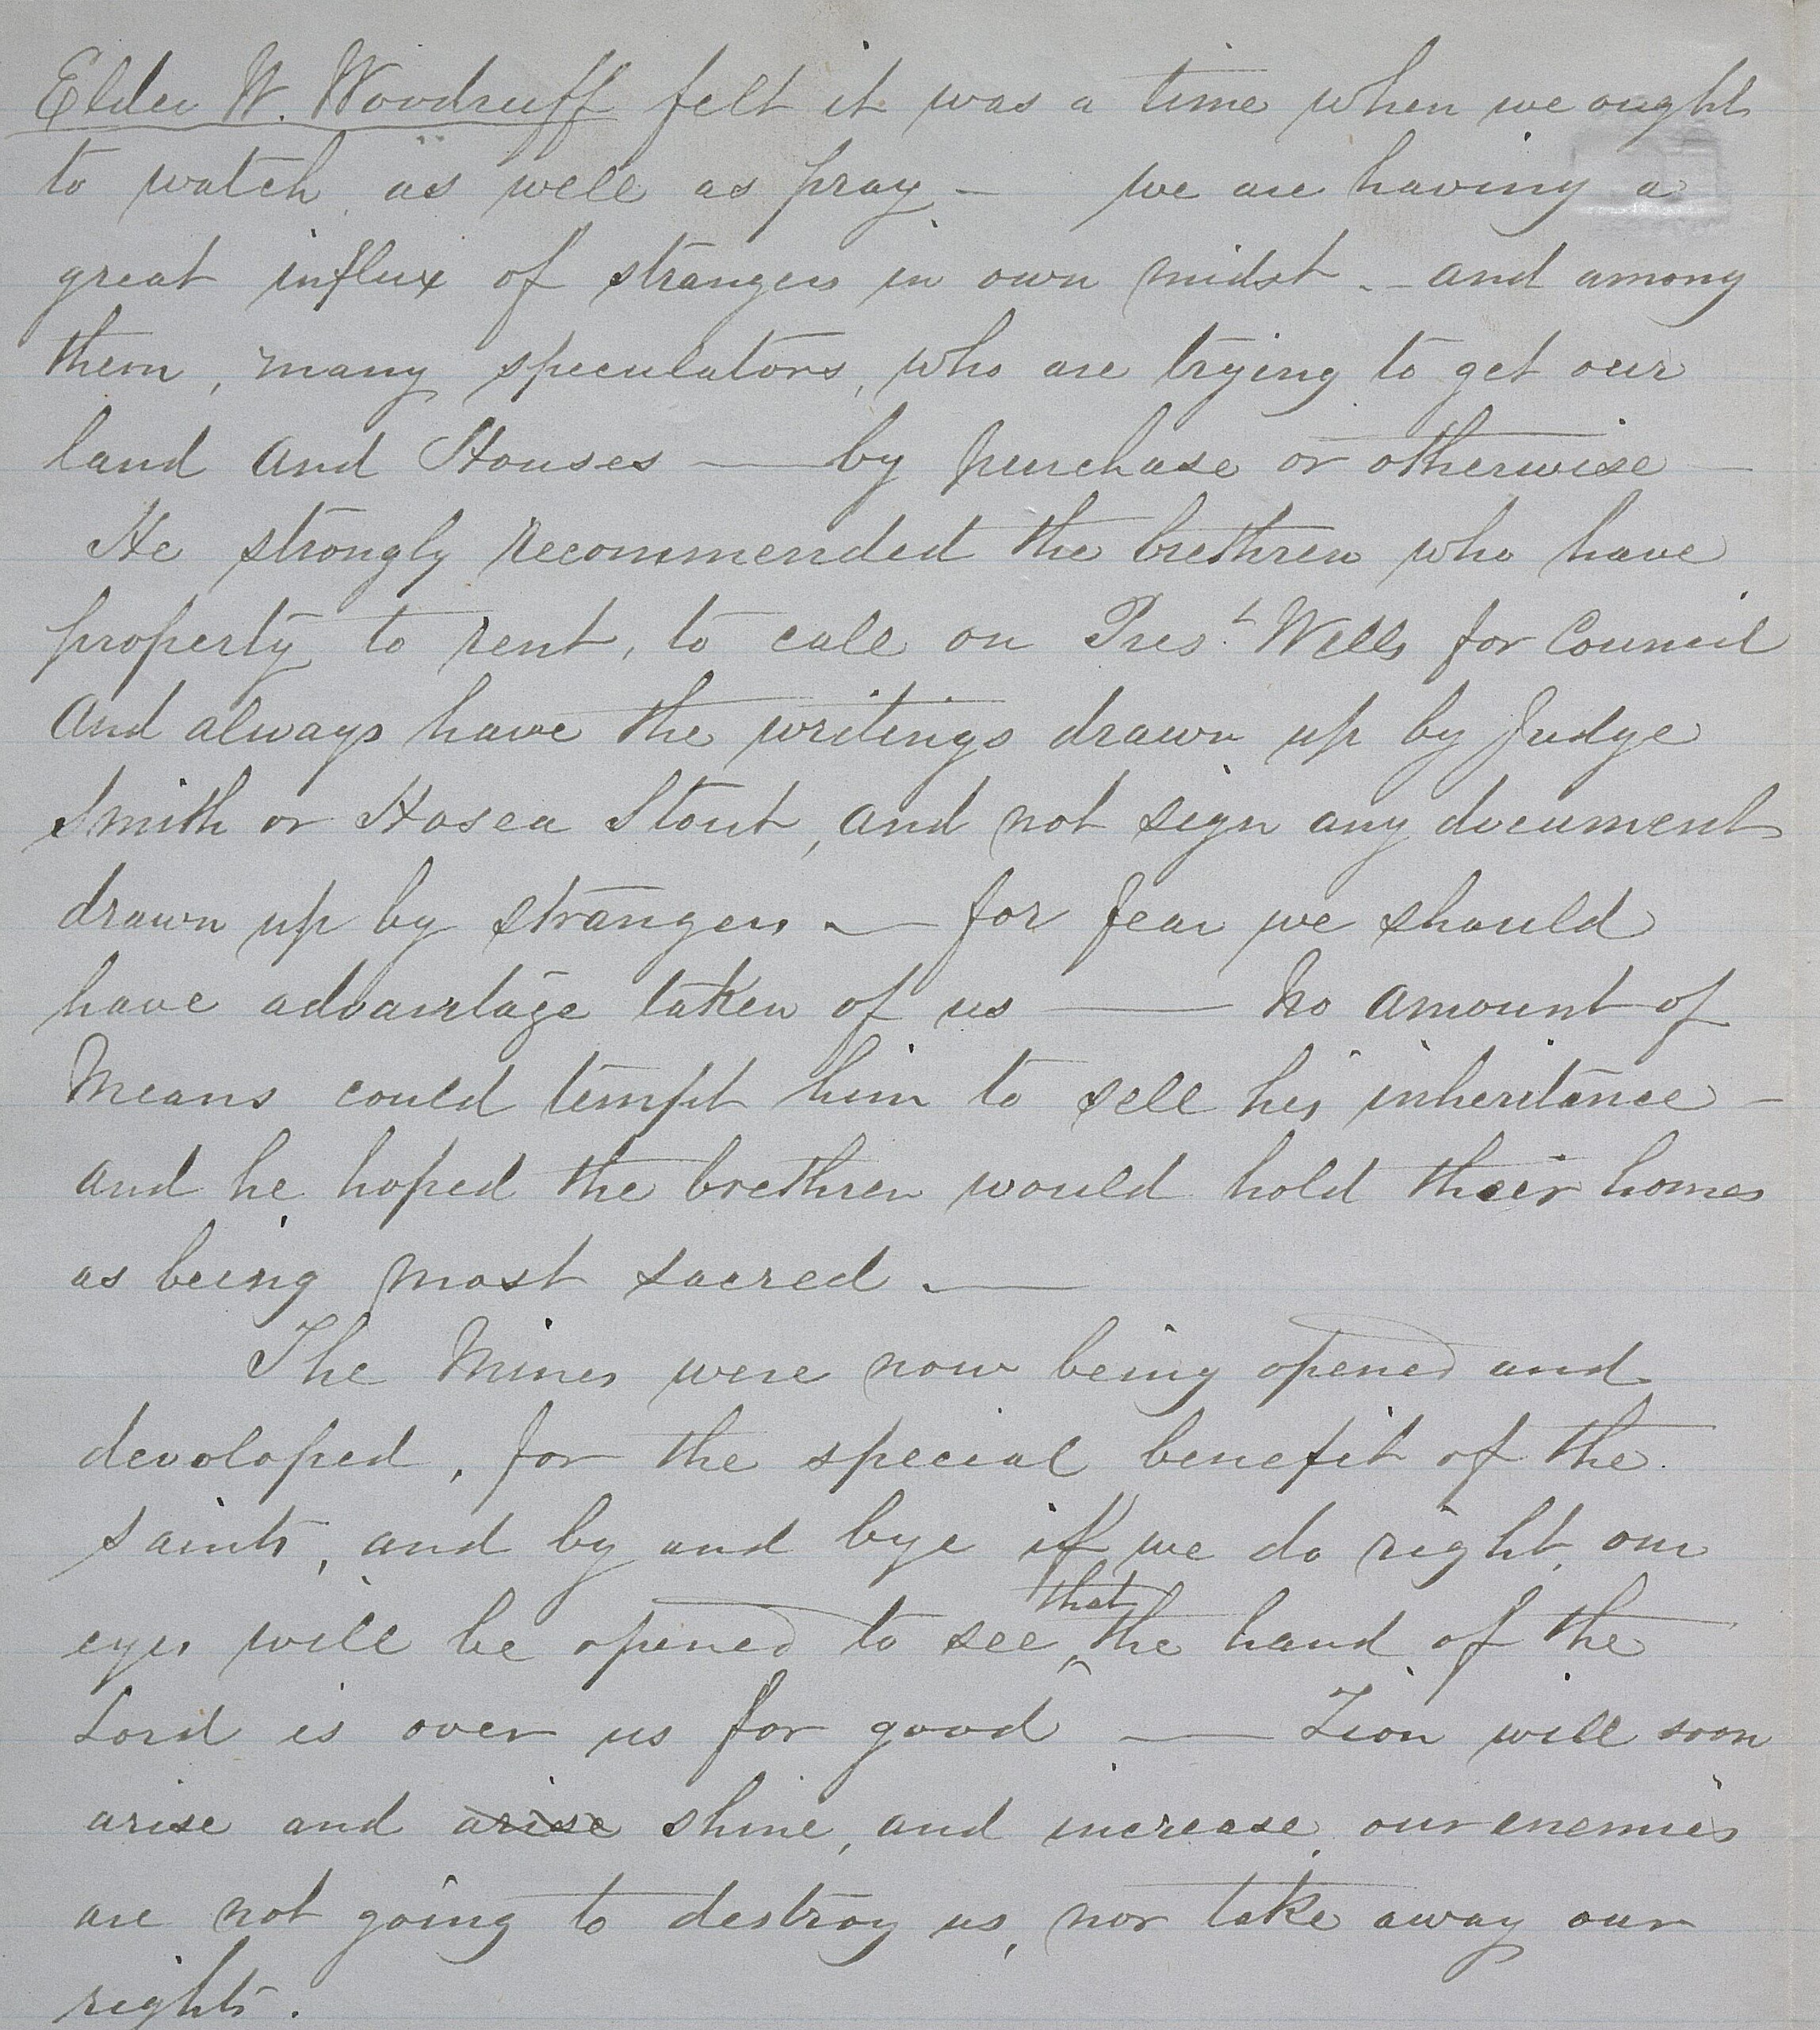 Elder W. Woodruff felt it was a time when we ought
to watch as well as pray – we are having a
great influx of strangers in own midst – and among
them, many speculators, who are trying to get our
land and Houses — by purchase or otherwise —
He strongly recommended the brethren who have
property to rent, to call on Prest Wells for Council
and always have the writings drawn up by Judge
Smith or Hosea Stout, and not sign any document
drawn up by strangers. — for fear we should
have advantage taken of us — No amount of
Means could tempt him to sell his inheritance –
and he hoped the brethren would hold their homes
as being most sacred. —
The Mines were now being opened and
devoloped, for the special benefit of the
saints, and by and bye if we do right, our
eyes will be opened to see that the hand of the
Lord is over us for good — Zion will soon
arise and arise shine, and increase, our enemies
are not going to destroy us, nor take away our
rights.